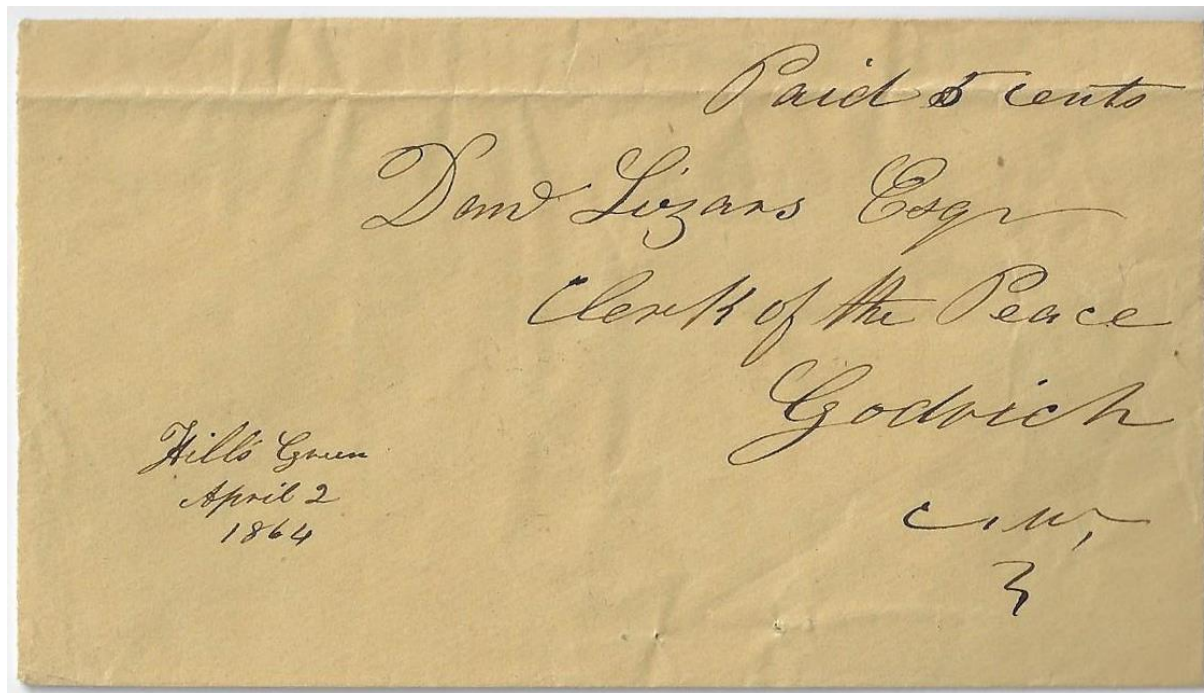 Paid 5 cents
Danl Lizars Esqr
Clerk of the Peace
Godrich
C.W,
Hill's Green
April 2
1864